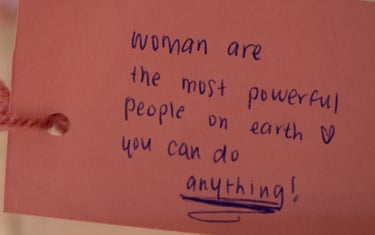 woman are
the most powerful
people on earth ♡
you can do
anything!